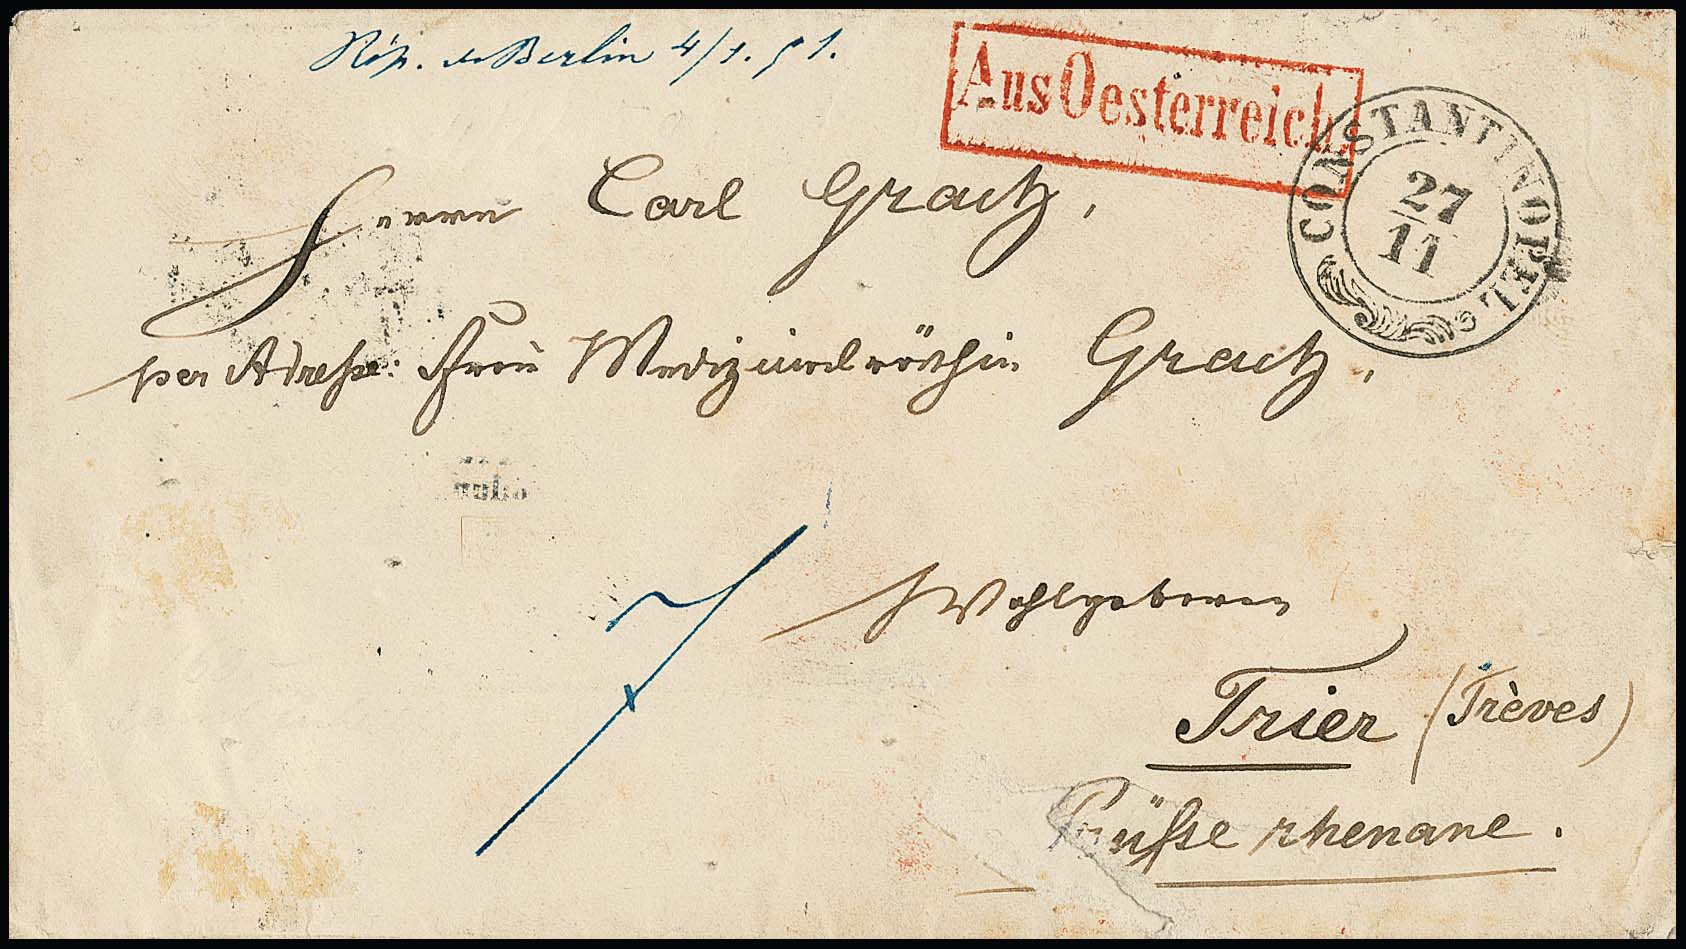 Rép. de Berlin 4/1. 51.
Aus Oesterreich
CONSTANTINOPEL
27
11
Herrn Carl Graetz,
per Adresse: Frau Medizinalräthin Graetz,
Wohlgeboren
Trier (Trèves)
Prüsse rhenane.